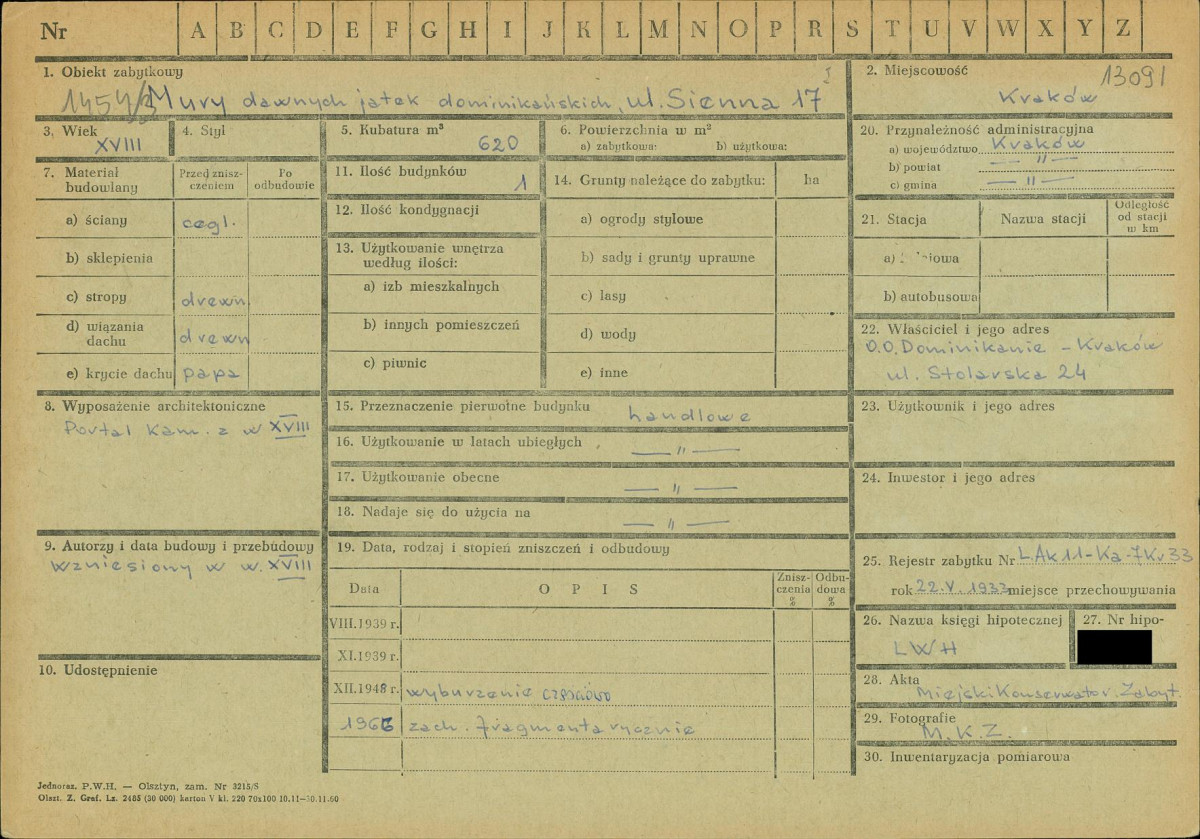 Nr A B C D E F G H I J K L M N O P R S T U V W X Y Z
1. Obiekt zabytkowy
Mury dawnych jatek dominikańskich, ul. Sienna 17
I
2. Miejscowość 13091
Kraków
3. Wiek
XVIII
4. Styl
5. Kubatura m³
620
6. Powierzchnia w m²
a) zabytkowa: b) użytkowa:
20. Przynależność administracyjna
a) województwo Kraków
b) powiat — " —
c) gmina — " —
7. Materiał budowlany
Przed zniszczeniem
Po odbudowie
a) ściany cegl.
b) sklepienia
c) stropy drewn.
d) wiązania dachu drewn
e) krycie dachu papa
11. Ilość budynków
1
12. Ilość kondygnacji
13. Użytkowanie wnętrza
według ilości:
a) izb mieszkalnych
b) innych pomieszczeń
c) piwnic
14. Grunty należące do zabytku: ha
a) ogrody stylowe
b) sady i grunty uprawne
c) lasy
d) wody
e) inne
21. Stacja Nazwa stacji Odległość od stacji w km
a)
b) autobusowa
22. Właściciel i jego adres
O.O. Dominikanie - Kraków
ul. Stolarska 24
8. Wyposażenie architektoniczne
Portal kam. z w XVIII
15. Przeznaczenie pierwotne budynku handlowe
16. Użytkowanie w latach ubiegłych — " —
17. Użytkowanie obecne — " —
18. Nadaje się do użycia na — " —
23. Użytkownik i jego adres
24. Inwestor i jego adres
9. Autorzy i data budowy i przebudowy
Wzniesiony w w. XVIII
10. Udostępnienie
19. Data, rodzaj i stopień zniszczeń i odbudowy
Data OPIS Zniszczenia % Odbudowa %
VIII.1939 r.
XI.1939 r.
XII.1948 r. wyburzenie częściowo
1966 zach. fragmentarycznie
25. Rejestr zabytku Nr L.Ak 11-Ka-7Kr 33
rok 22.V.1933 miejsce przechowywania
26. Nazwa księgi hipotecznej
LWH
27. Nr hipo-
28. Akta
Miejski Konserwator. Zabyt.
29. Fotografie
M.K.Z.
30. Inwentaryzacja pomiarowa
Jednoraz. P.W.H. — Olsztyn, zam. Nr 3215/S
Olszt. Z. Graf. Lz. 2485 (30 000) karton V kl. 220 70x100 10.11—30.11.60